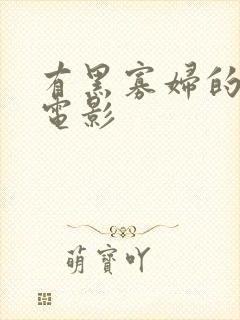 有黑寡婦的
電影
萌寶吖